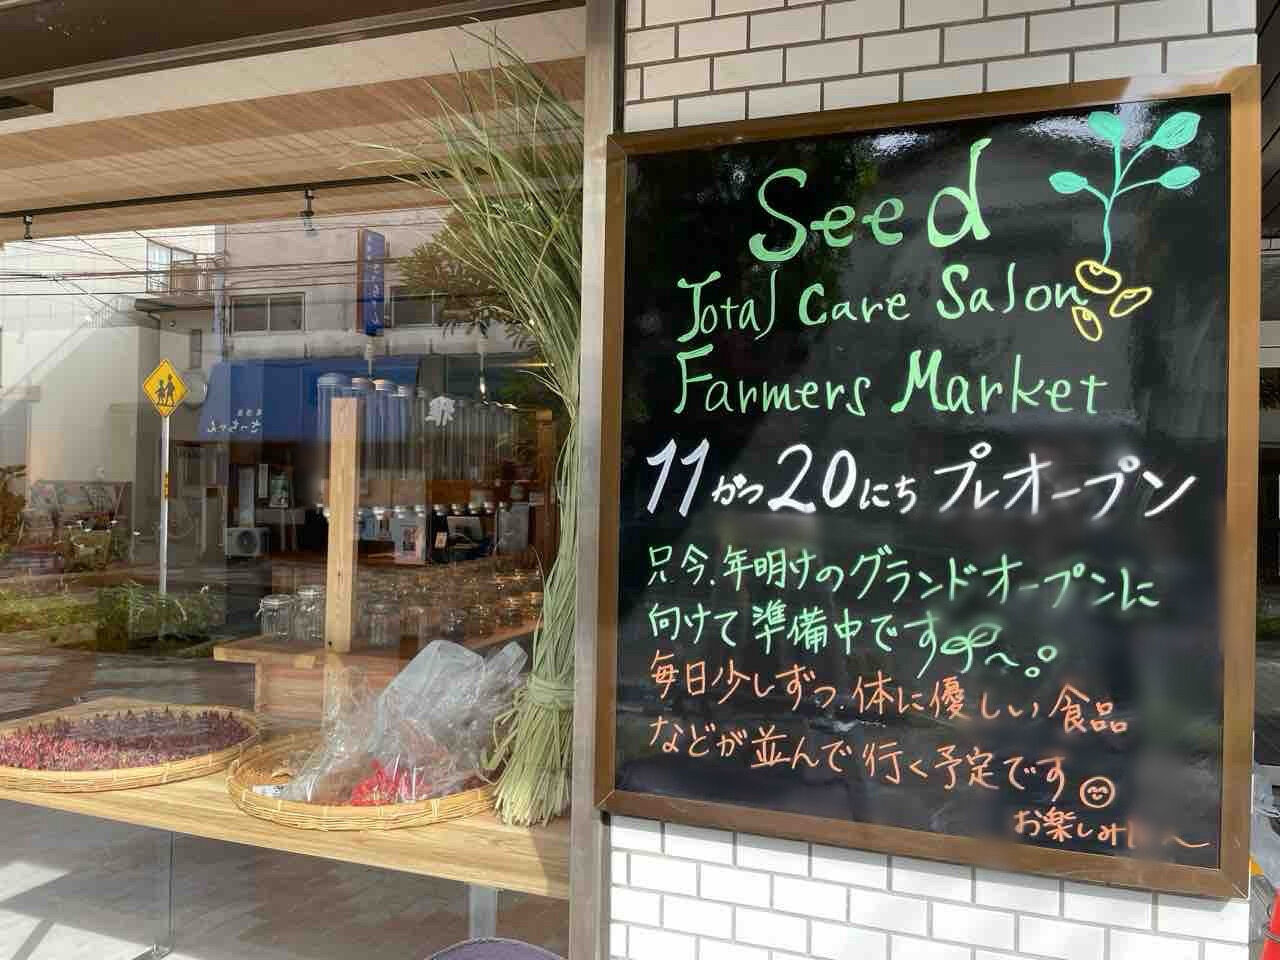 Seed
Total Care Salon
Farmers Market
11がつ20にち プレオープン
只今、年明けのグランドオープンに
向けて準備中です〜。
毎日少しずつ、体に優しい食品
などが並んで行く予定です
お楽しみに〜